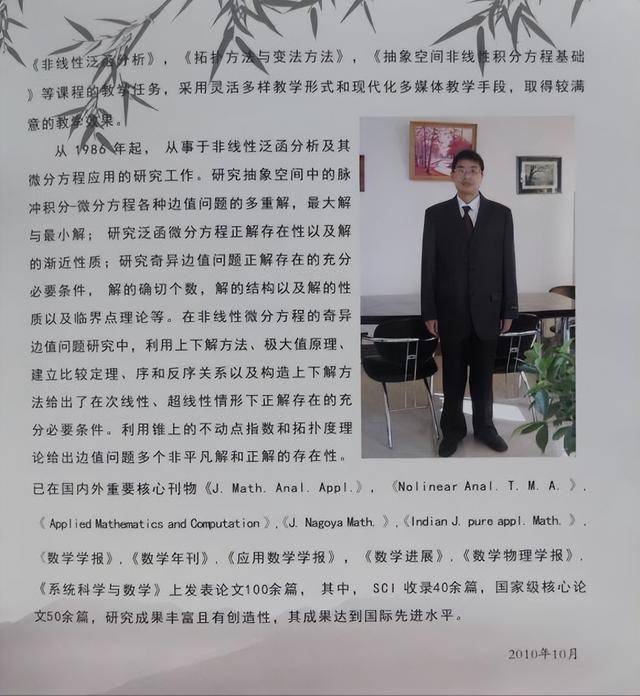 《非线性泛函分析》，《拓扑方法与变法方法》，《抽象空间非线性积分方程基础
》等课程的教学任务，采用灵活多样教学形式和现代化多媒体教学手段，取得较满
意的教学效果。
从 1986 年起，从事于非线性泛函分析及其
微分方程应用的研究工作。研究抽象空间中的脉
冲积分-微分方程各种边值问题的多重解，最大解
与最小解；研究泛函微分方程正解存在性以及解
的渐近性质；研究奇异边值问题正解存在的充分
必要条件，解的确切个数，解的结构以及解的性
质以及临界点理论等。在非线性微分方程的奇异
边值问题研究中，利用上下解方法、极大值原理、
建立比较定理、序和反序关系以及构造上下解方
法给出了在次线性、超线性情形下正解存在的充
分必要条件。利用锥上的不动点指数和拓扑度理
论给出边值问题多个非平凡解和正解的存在性。
已在国内外重要核心刊物《J. Math. Anal. Appl.》，《Nolinear Anal. T. M. A. 》.
《Applied Mathematics and Computation 》,《J. Nagoya Math. 》,《Indian J. pure appl. Math. 》.
《数学学报》.《数学年刊》.《应用数学学报》，《数学进展》.《数学物理学报》.
《系统科学与数学》上发表论文100余篇，其中，SCI 收录40余篇，国家级核心论
文50余篇，研究成果丰富且有创造性，其成果达到国际先进水平。
2010年10月